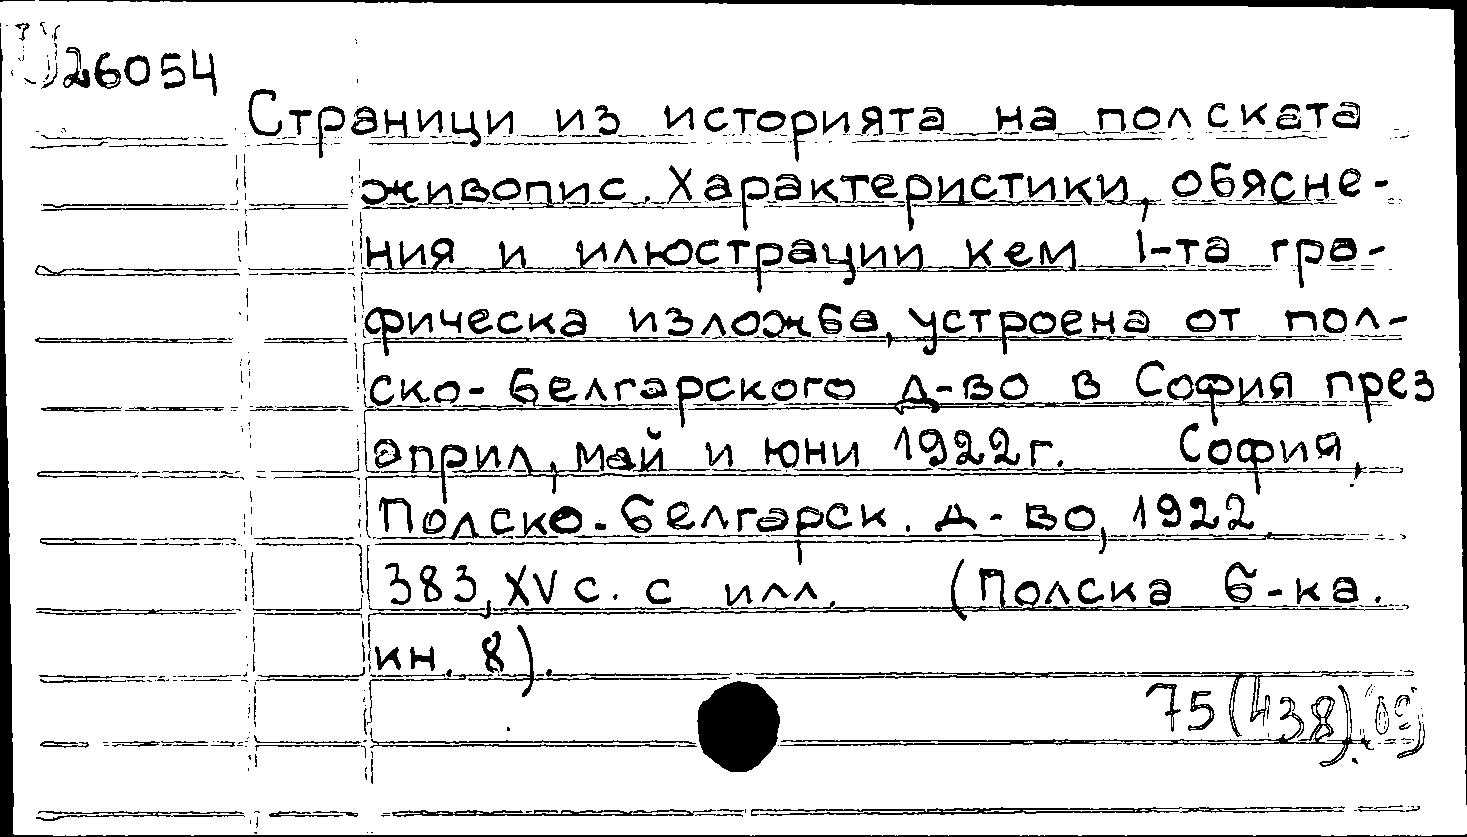 26054
Страници из историята на полската
живопис. Характеристики, обясне-
ния и илюстрации кем 1-та гра-
фическа изложба, устроена от пол-
ско-белгарского д-во в София през
април, май и юни 1922г. София,
Полско-белгарск. д-во, 1922.
383, XV с. с илл. (Полска б-ка.
кн. 8).
75(438)(09)